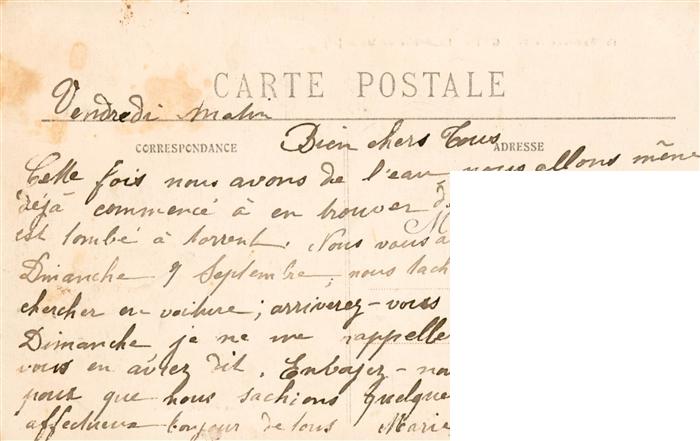 CARTE POSTALE
Vendredi Matin
CORRESPONDANCE
Bien chers Tous
ADRESSE
Cette fois nous avons de l'eau, nous allons même
déjà commencé à en trouver
M
est tombé à torrent. Nous vous a
Dimanche 9 Septembre, nous tâch
chercher en voiture; arriverez-vous
Dimanche je ne me rappelle
vous en avez dit. Envoyez-no
pour que nous sachions quelque
affectueux bonjour de tous Marie